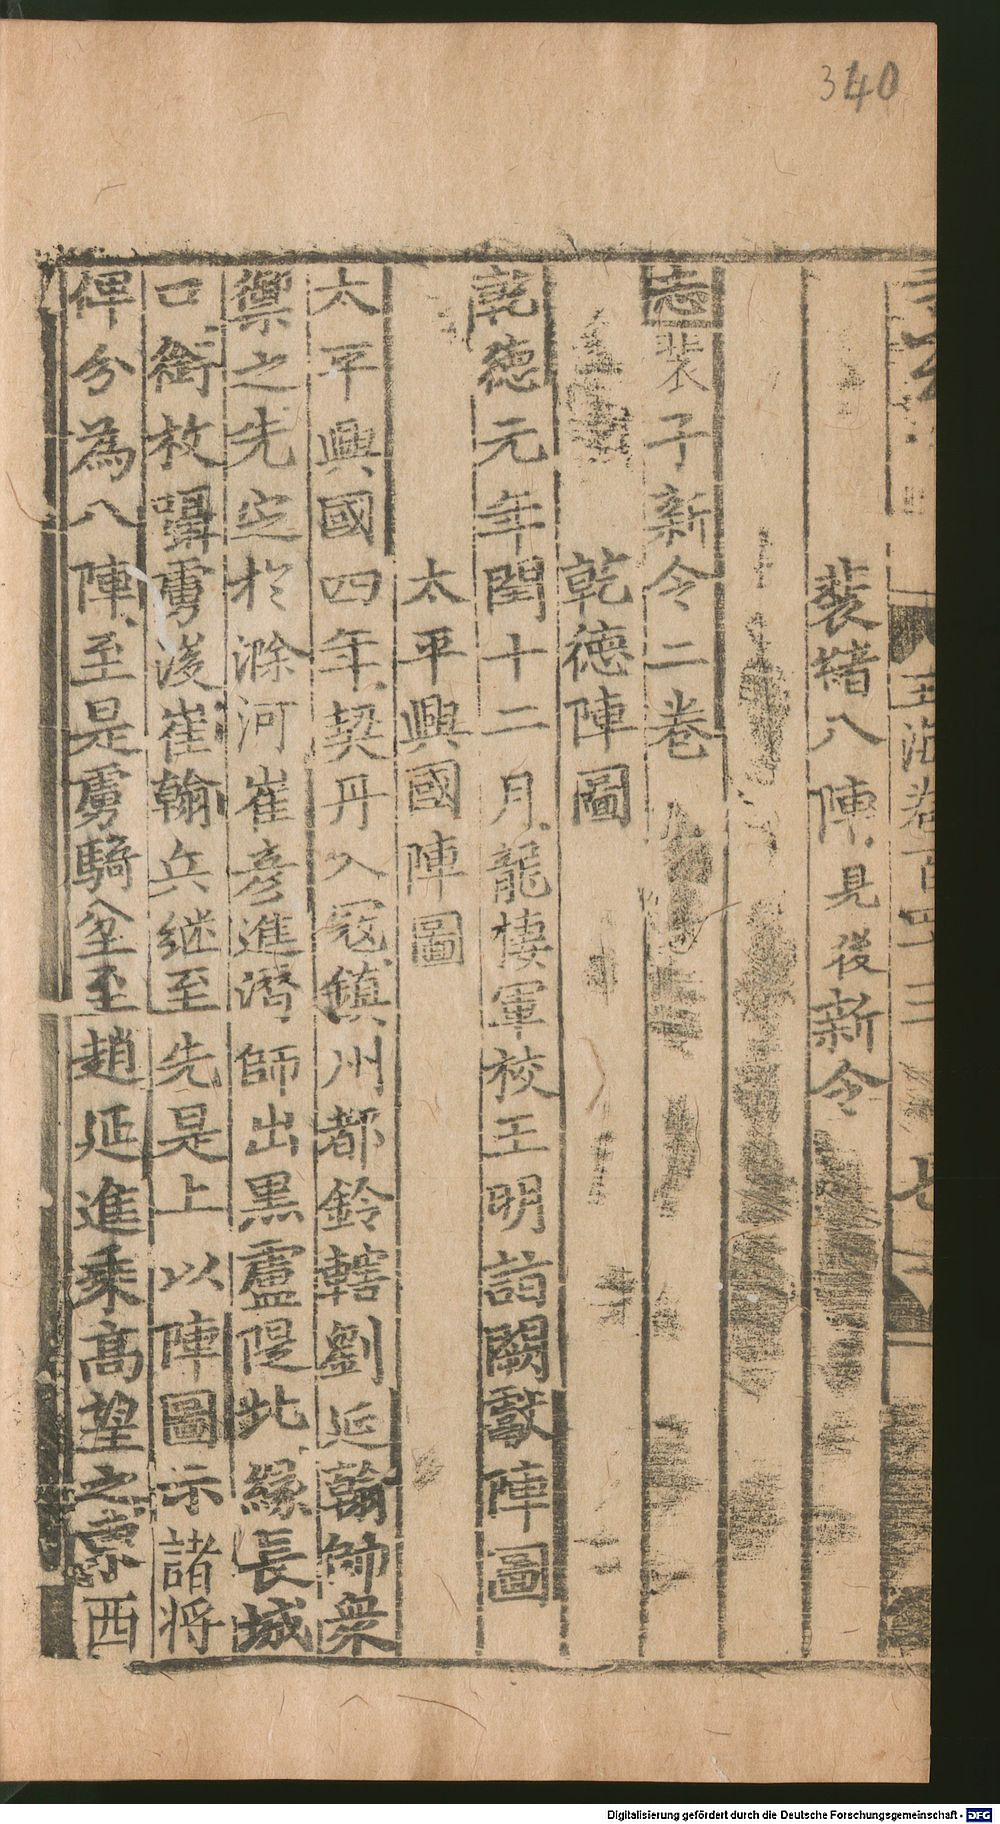 340
玉海卷百四三
裴緒八陣見後新令
志裴子新令二卷
乾德陣圖
乾德元年閏十二月龍棲軍校王明詣闕獻陣圖
太平興國陣圖
太平興國四年契丹入冦鎮州都鈐轄劉延翰帥衆
禦之先定於滁河崔彦進潛師出黑盧隄北緣長城
口銜枚躡虜後崔翰兵継至先是上以陣圖示諸将
俾分為八陣至是虜騎坌至趙延進乘髙望之東西
Digitalisierung gefördert durch die Deutsche Forschungsgemeinschaft - DFG